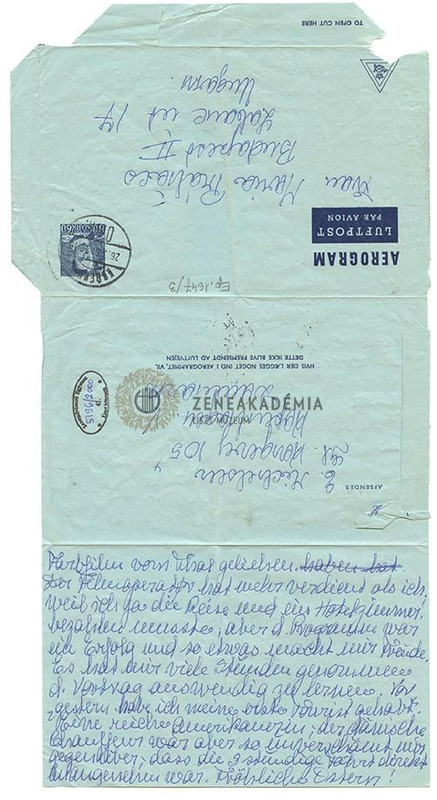 TO OPEN CUT HERE
Frau Maria Bálács
Budapest II
Labanc ut 17
Ungarn.
AEROGRAM
LUFTPOST
PAR AVION
60
Ep. 1647/3
HVIS DER LÆGGES NOGET IND I AEROGRAMMET, VIL
DETTE IKKE BLIVE FREMSENDT AD LUFTVEJEN
5196/2000
ZENEAKADÉMIA
MÚZEUM
AFSENDER
E.
Gl. Kongevej 105
Farbfilm vom Staat geliehen haben hat
Der Filmoperatør hat mehr verdient als ich,
weil ich ja die Reise und ein Hotelzimmer
bezahlen musste, aber d. Programm war
ein Erfolg und so etwas macht mir Freude.
Es hat mir viele Stunden genommen
d. Vortrag auswendig zu lernen. Vor
gestern hab ich meine erste Tourist gehabt.
Eine reiche Amerikanerin, der dänische
Chauffeur war aber so unverschämt mir
gegenüber, dass die 3 stündige Fahrt direkt
unangenehm war. Fröhliche Ostern!